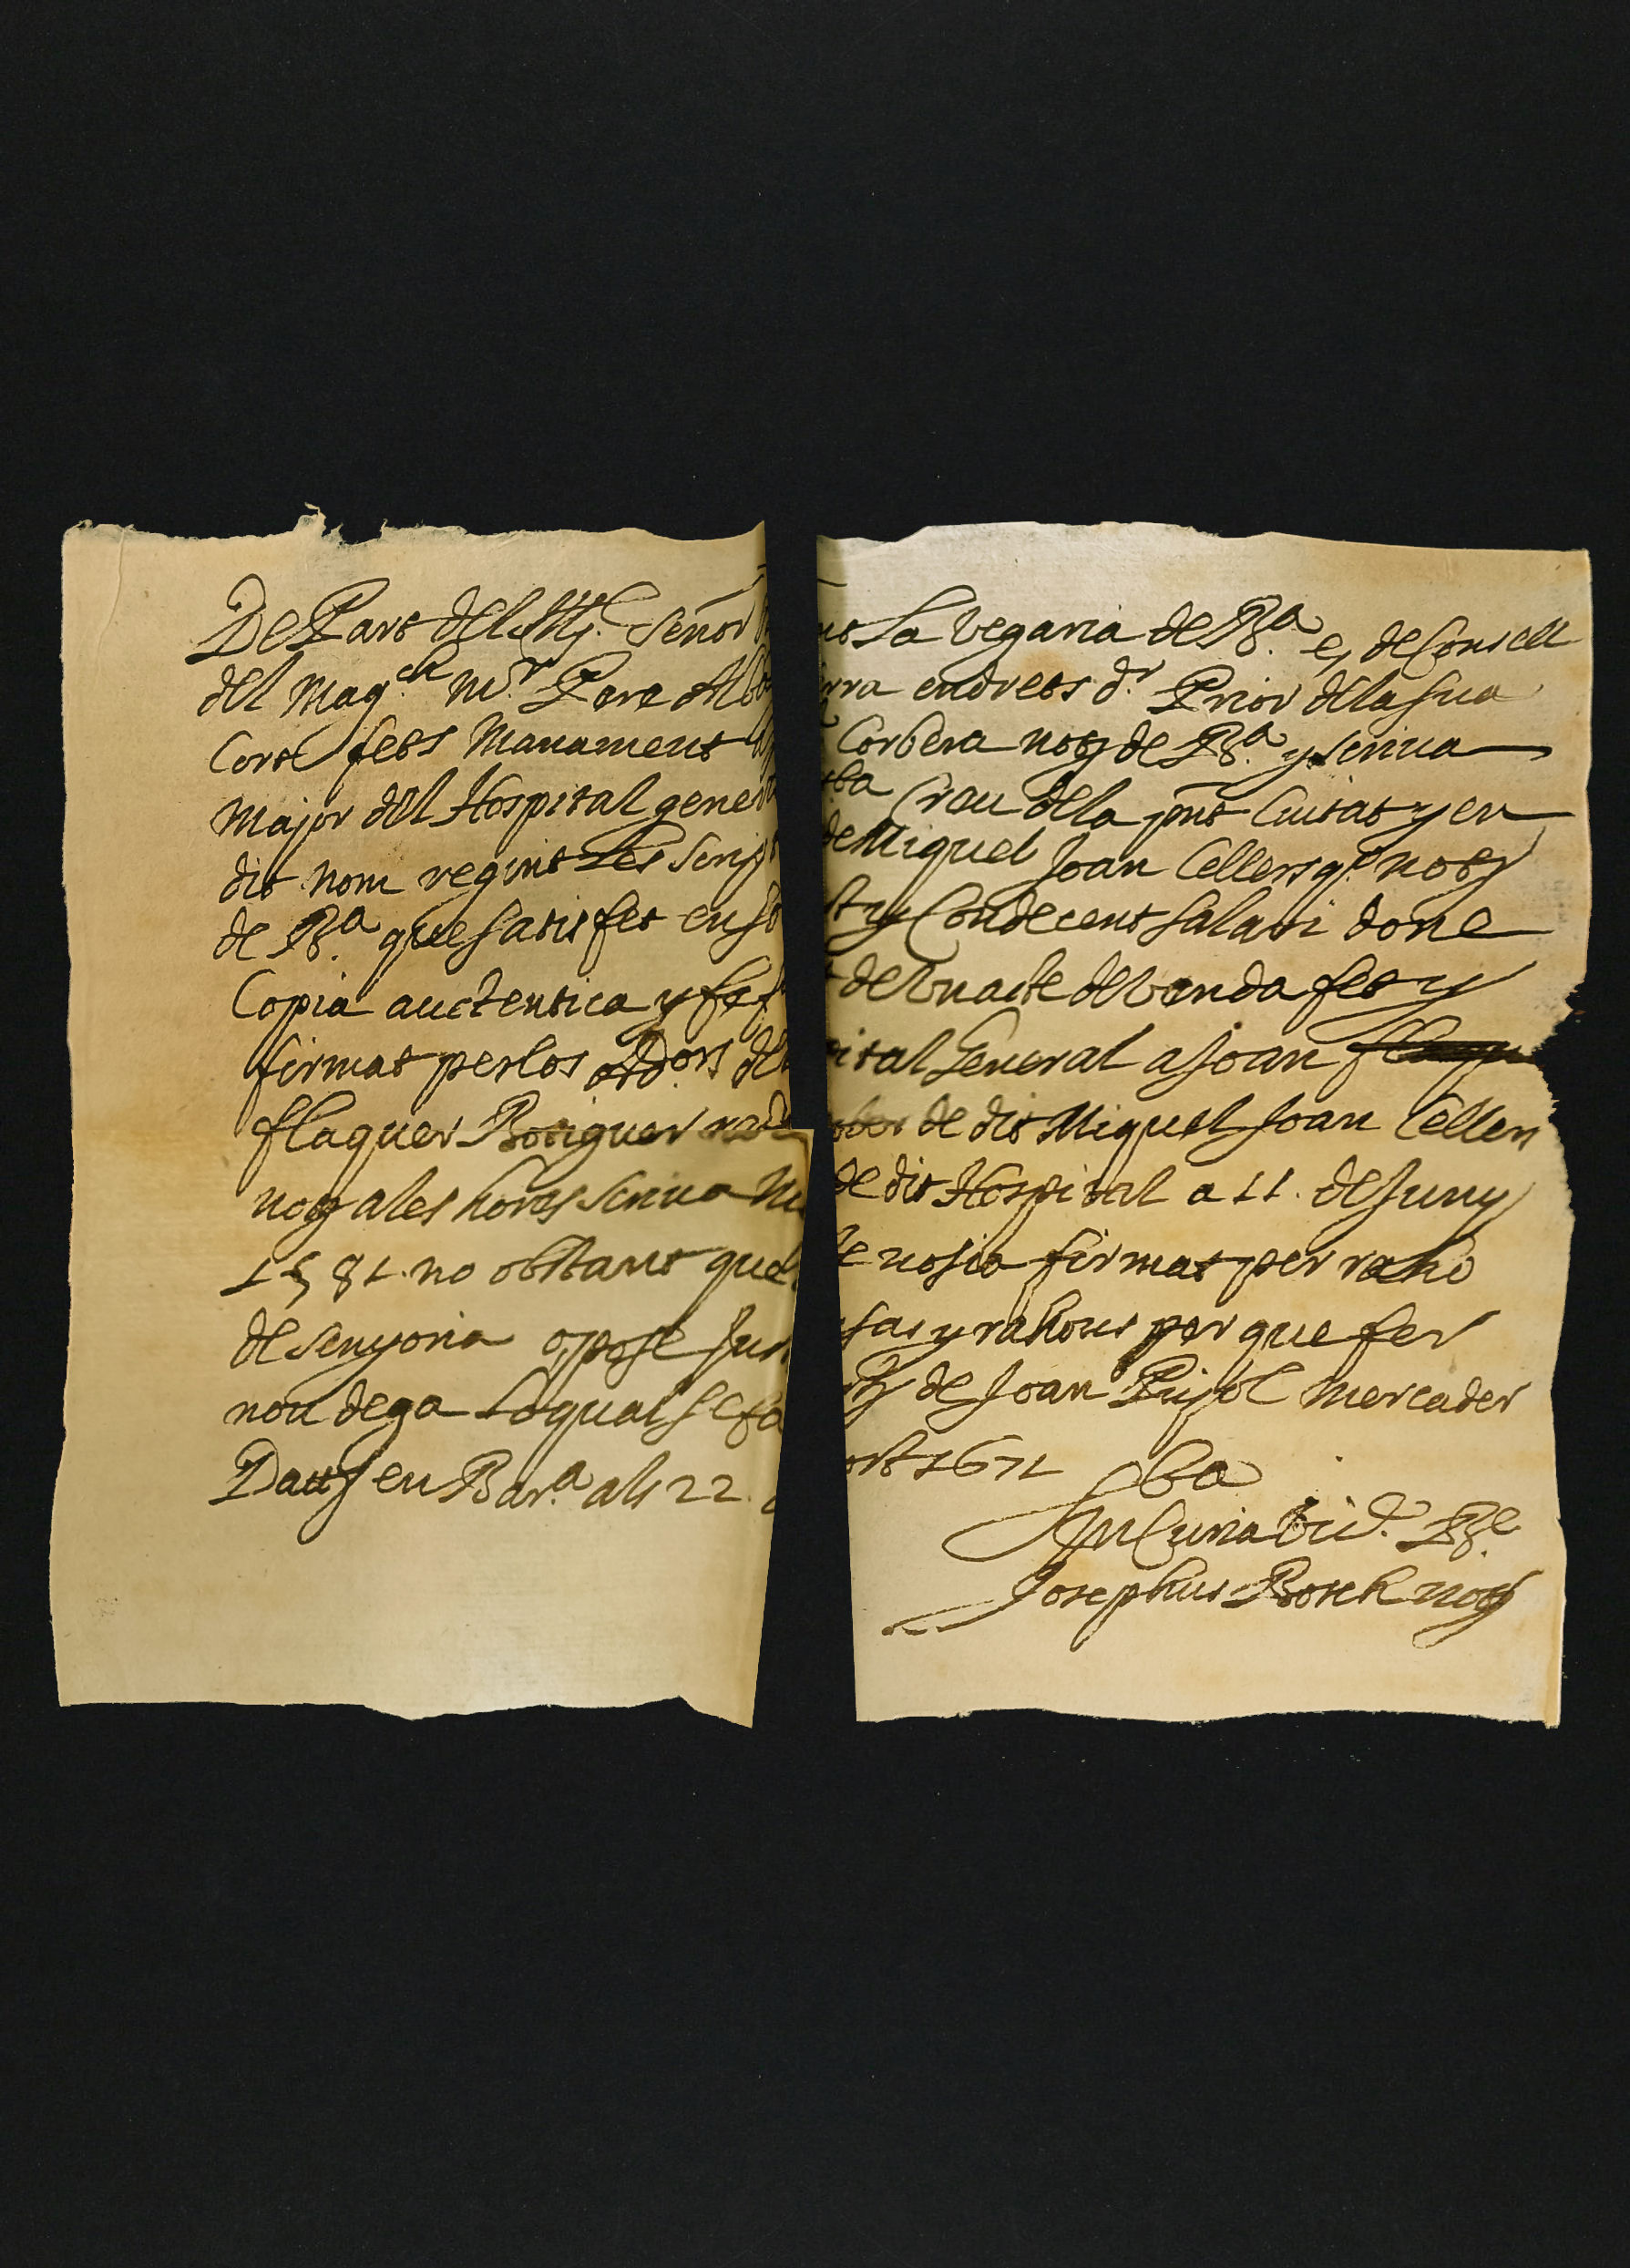 De Part del Illj. Señor nt la Vegaria de Ba. e, de Consell
del Magch. Mr. Pere Alb rra en drets dr. Prior de la sua
Cort fets Manament Corbera noty de Ba. y scriua
Major del Hospital gener Sta Creu de la pnt Ciutat y en
dit nom regint les Scrip de Miquel Joan Cellers qº. noty
de Ba. que satisfet en so st y Condecent salari done
Copia auctentica y fef t de Vn acte de Venda fet y
firmat per los addors. del ital General a Joan
flaquer Botiguer de dit Miquel Joan Cellers
noty a les hores scriua M de dit Hospital a 11. de Juny
1581. no obstant que le nosia firmat per raho
de senyoria o, pose Jur sas y rahons per que fer
nou dega Lo qual se fa ty de Joan Pujol Mercader
Datt, en Bara. als 22. ost 1671
ba
In Curia Vicj. Be.
Josephus Bosch noty